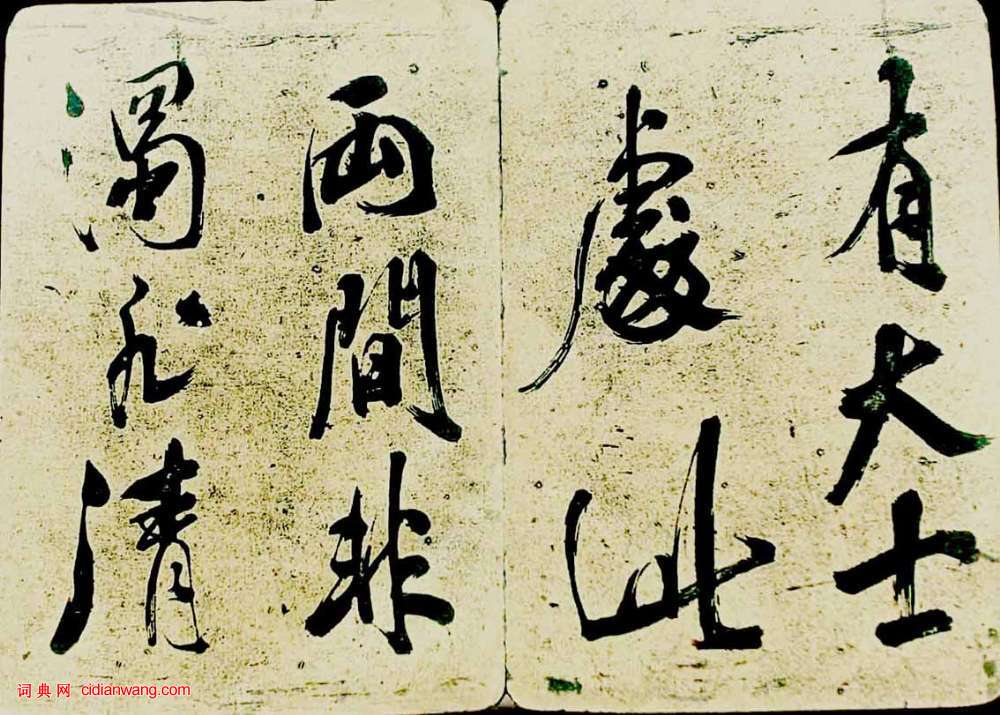 有大士
處此
兩間非
濁清
词典网 cidianwang.com